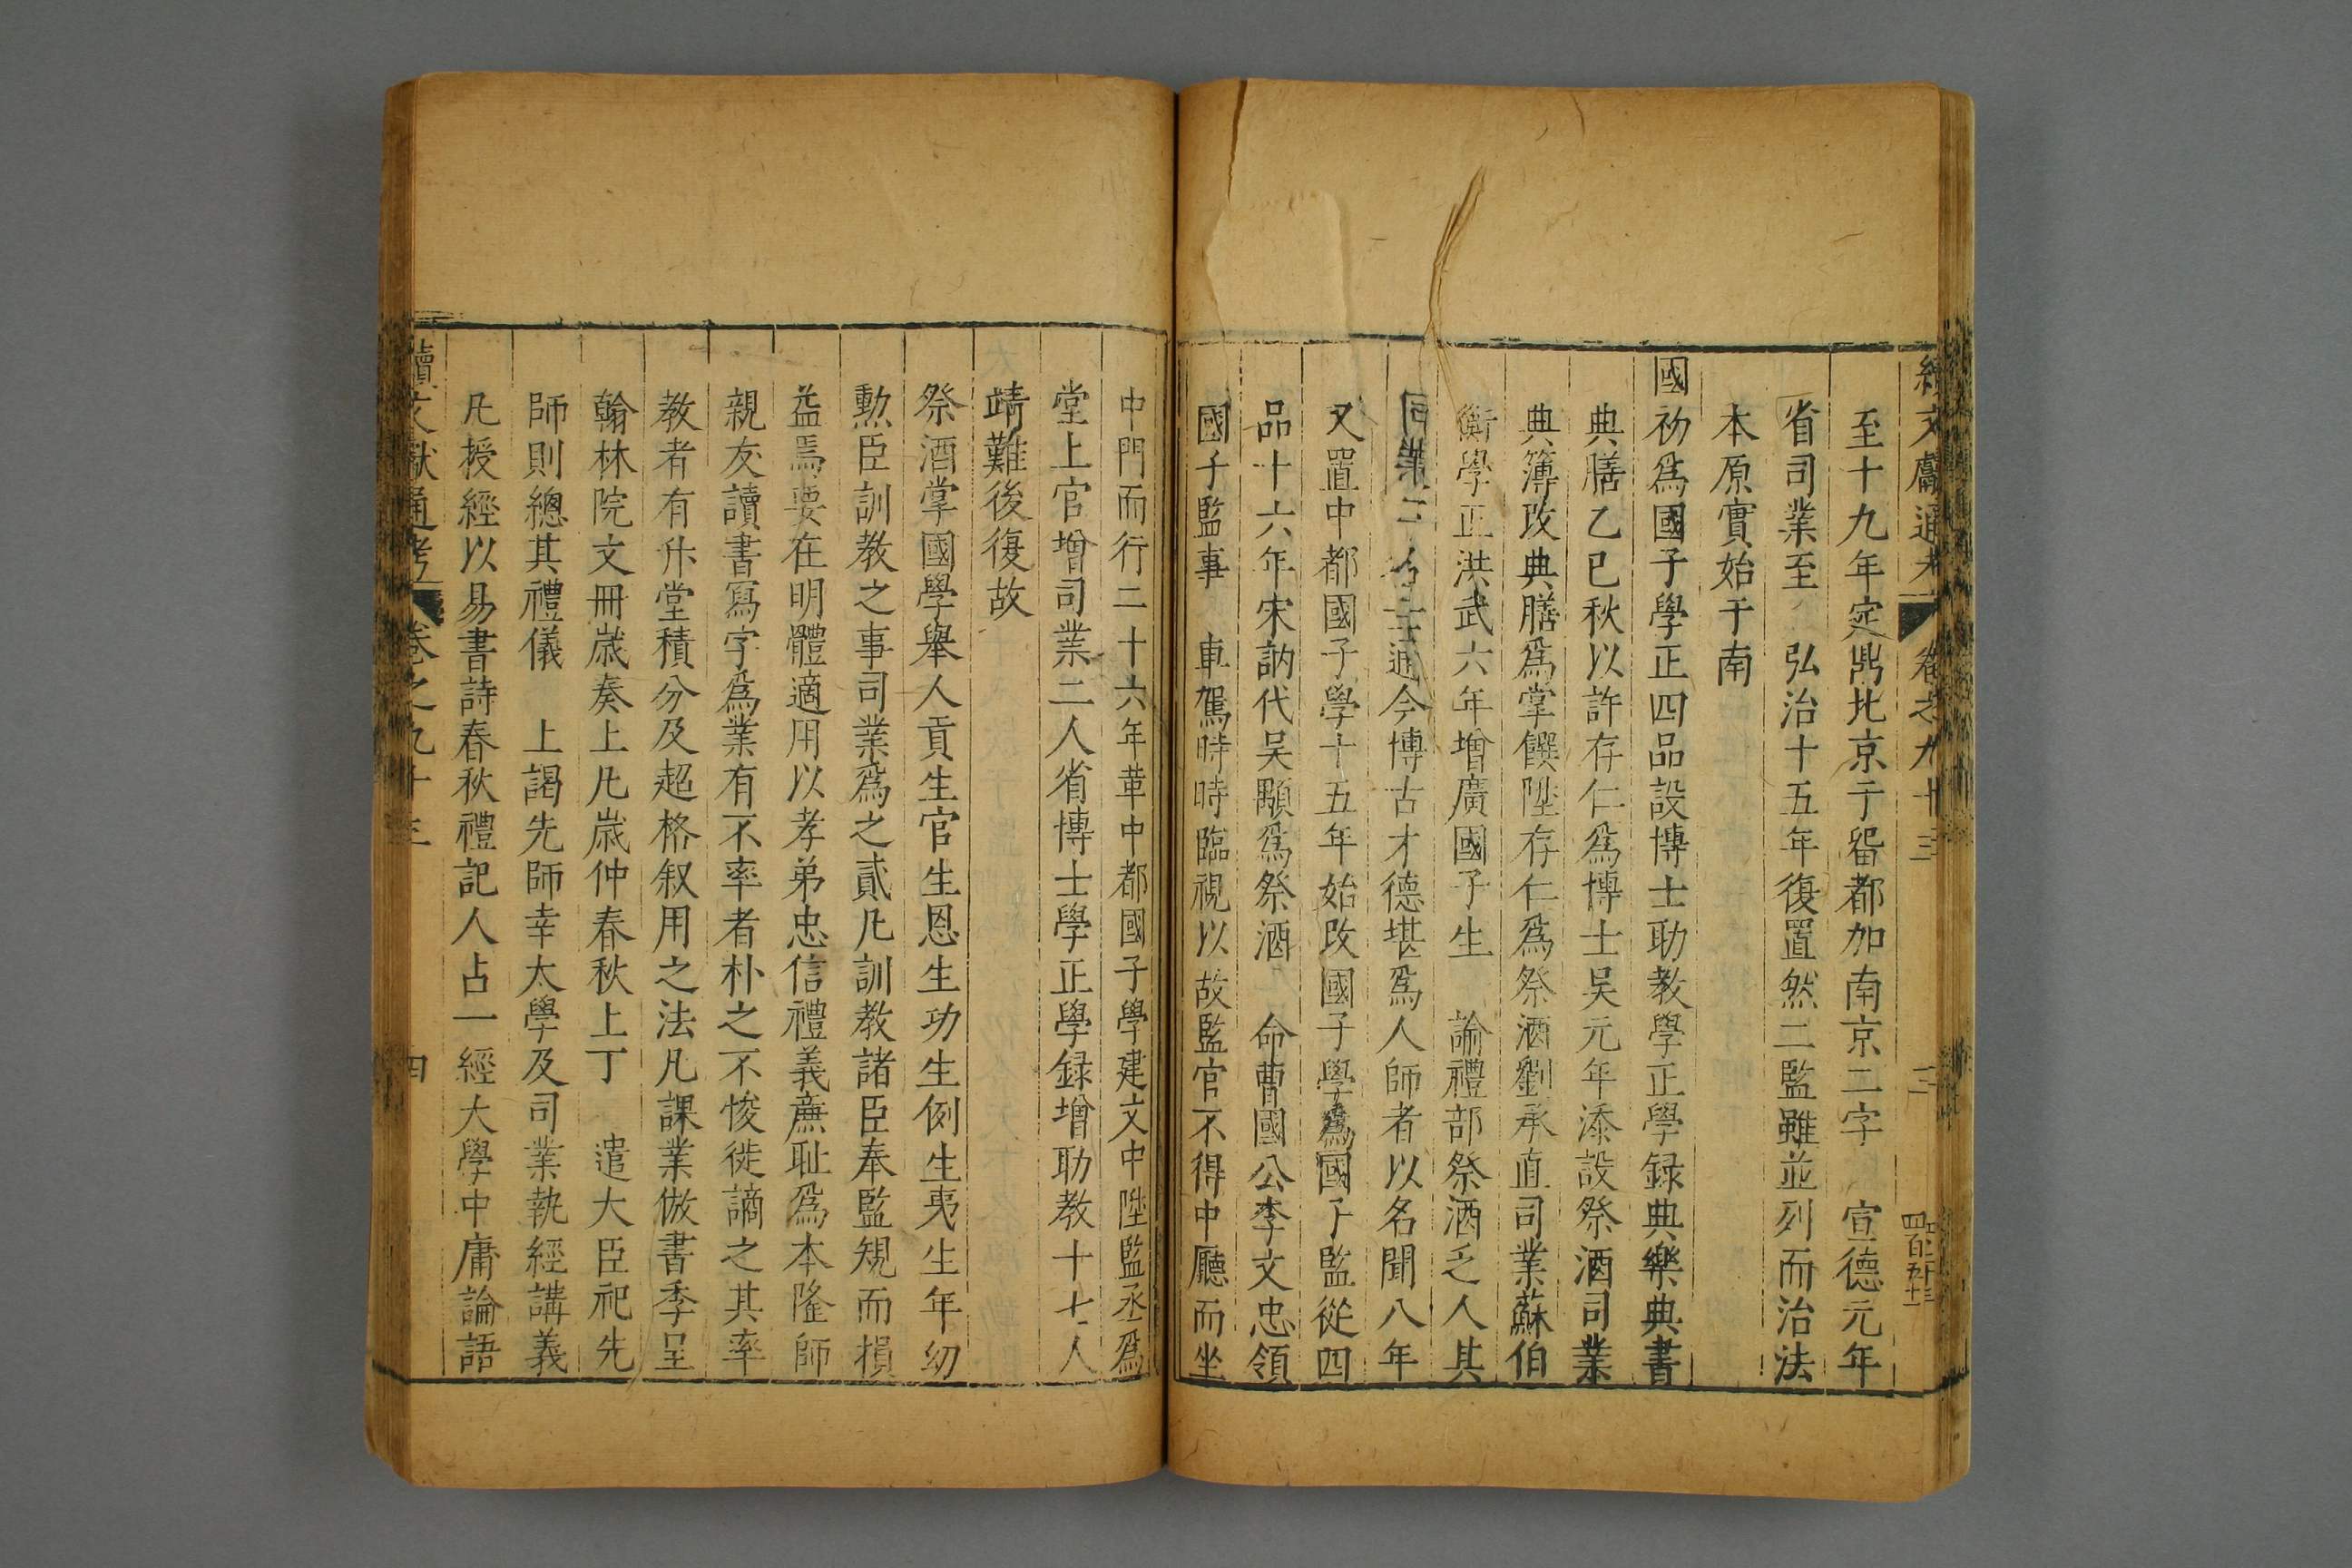 續文獻通考 卷之九十三 三
四百五十一
至十九年定鼎北京于畱都加南京二字 宣德元年
省司業至 弘治十五年復置然二監雖並列而治法
本原實始于南
國初爲國子學正四品設博士助教學正學録典樂典書
典膳乙巳秋以許存仁爲博士吴元年添設祭酒司業
典簿改典膳爲掌饌陞存仁爲祭酒劉承直司業蘇伯
衡學正洪武六年增廣國子生 諭禮部祭酒乏人其
通今博古才德堪爲人師者以名聞八年
又置中都國子學十五年始改國子學爲國子監從四
品十六年宋訥代吴顒爲祭酒 命曹國公李文忠領
國子監事 車駕時時臨視以故監官不得中廳而坐
中門而行二十六年革中都國子學建文中陞監丞爲
堂上官增司業二人省博士學正學録增助教十七人
靖難後復故
祭酒掌國學舉人貢生官生恩生功生例生夷生年幼
勲臣訓教之事司業爲之貳凡訓教諸臣奉監規而損
益焉要在明體適用以孝弟忠信禮義廉耻爲本隆師
親友讀書寫字爲業有不率者朴之不悛徙謫之其率
教者有升堂積分及超格叙用之法凡課業倣書季呈
翰林院文冊歲奏上凡歲仲春秋上丁 遣大臣祀先
師則總其禮儀 上謁先師幸太學及司業執經講義
凡授經以易書詩春秋禮記人占一經大學中庸論語
續文獻通考 卷之九十三 四